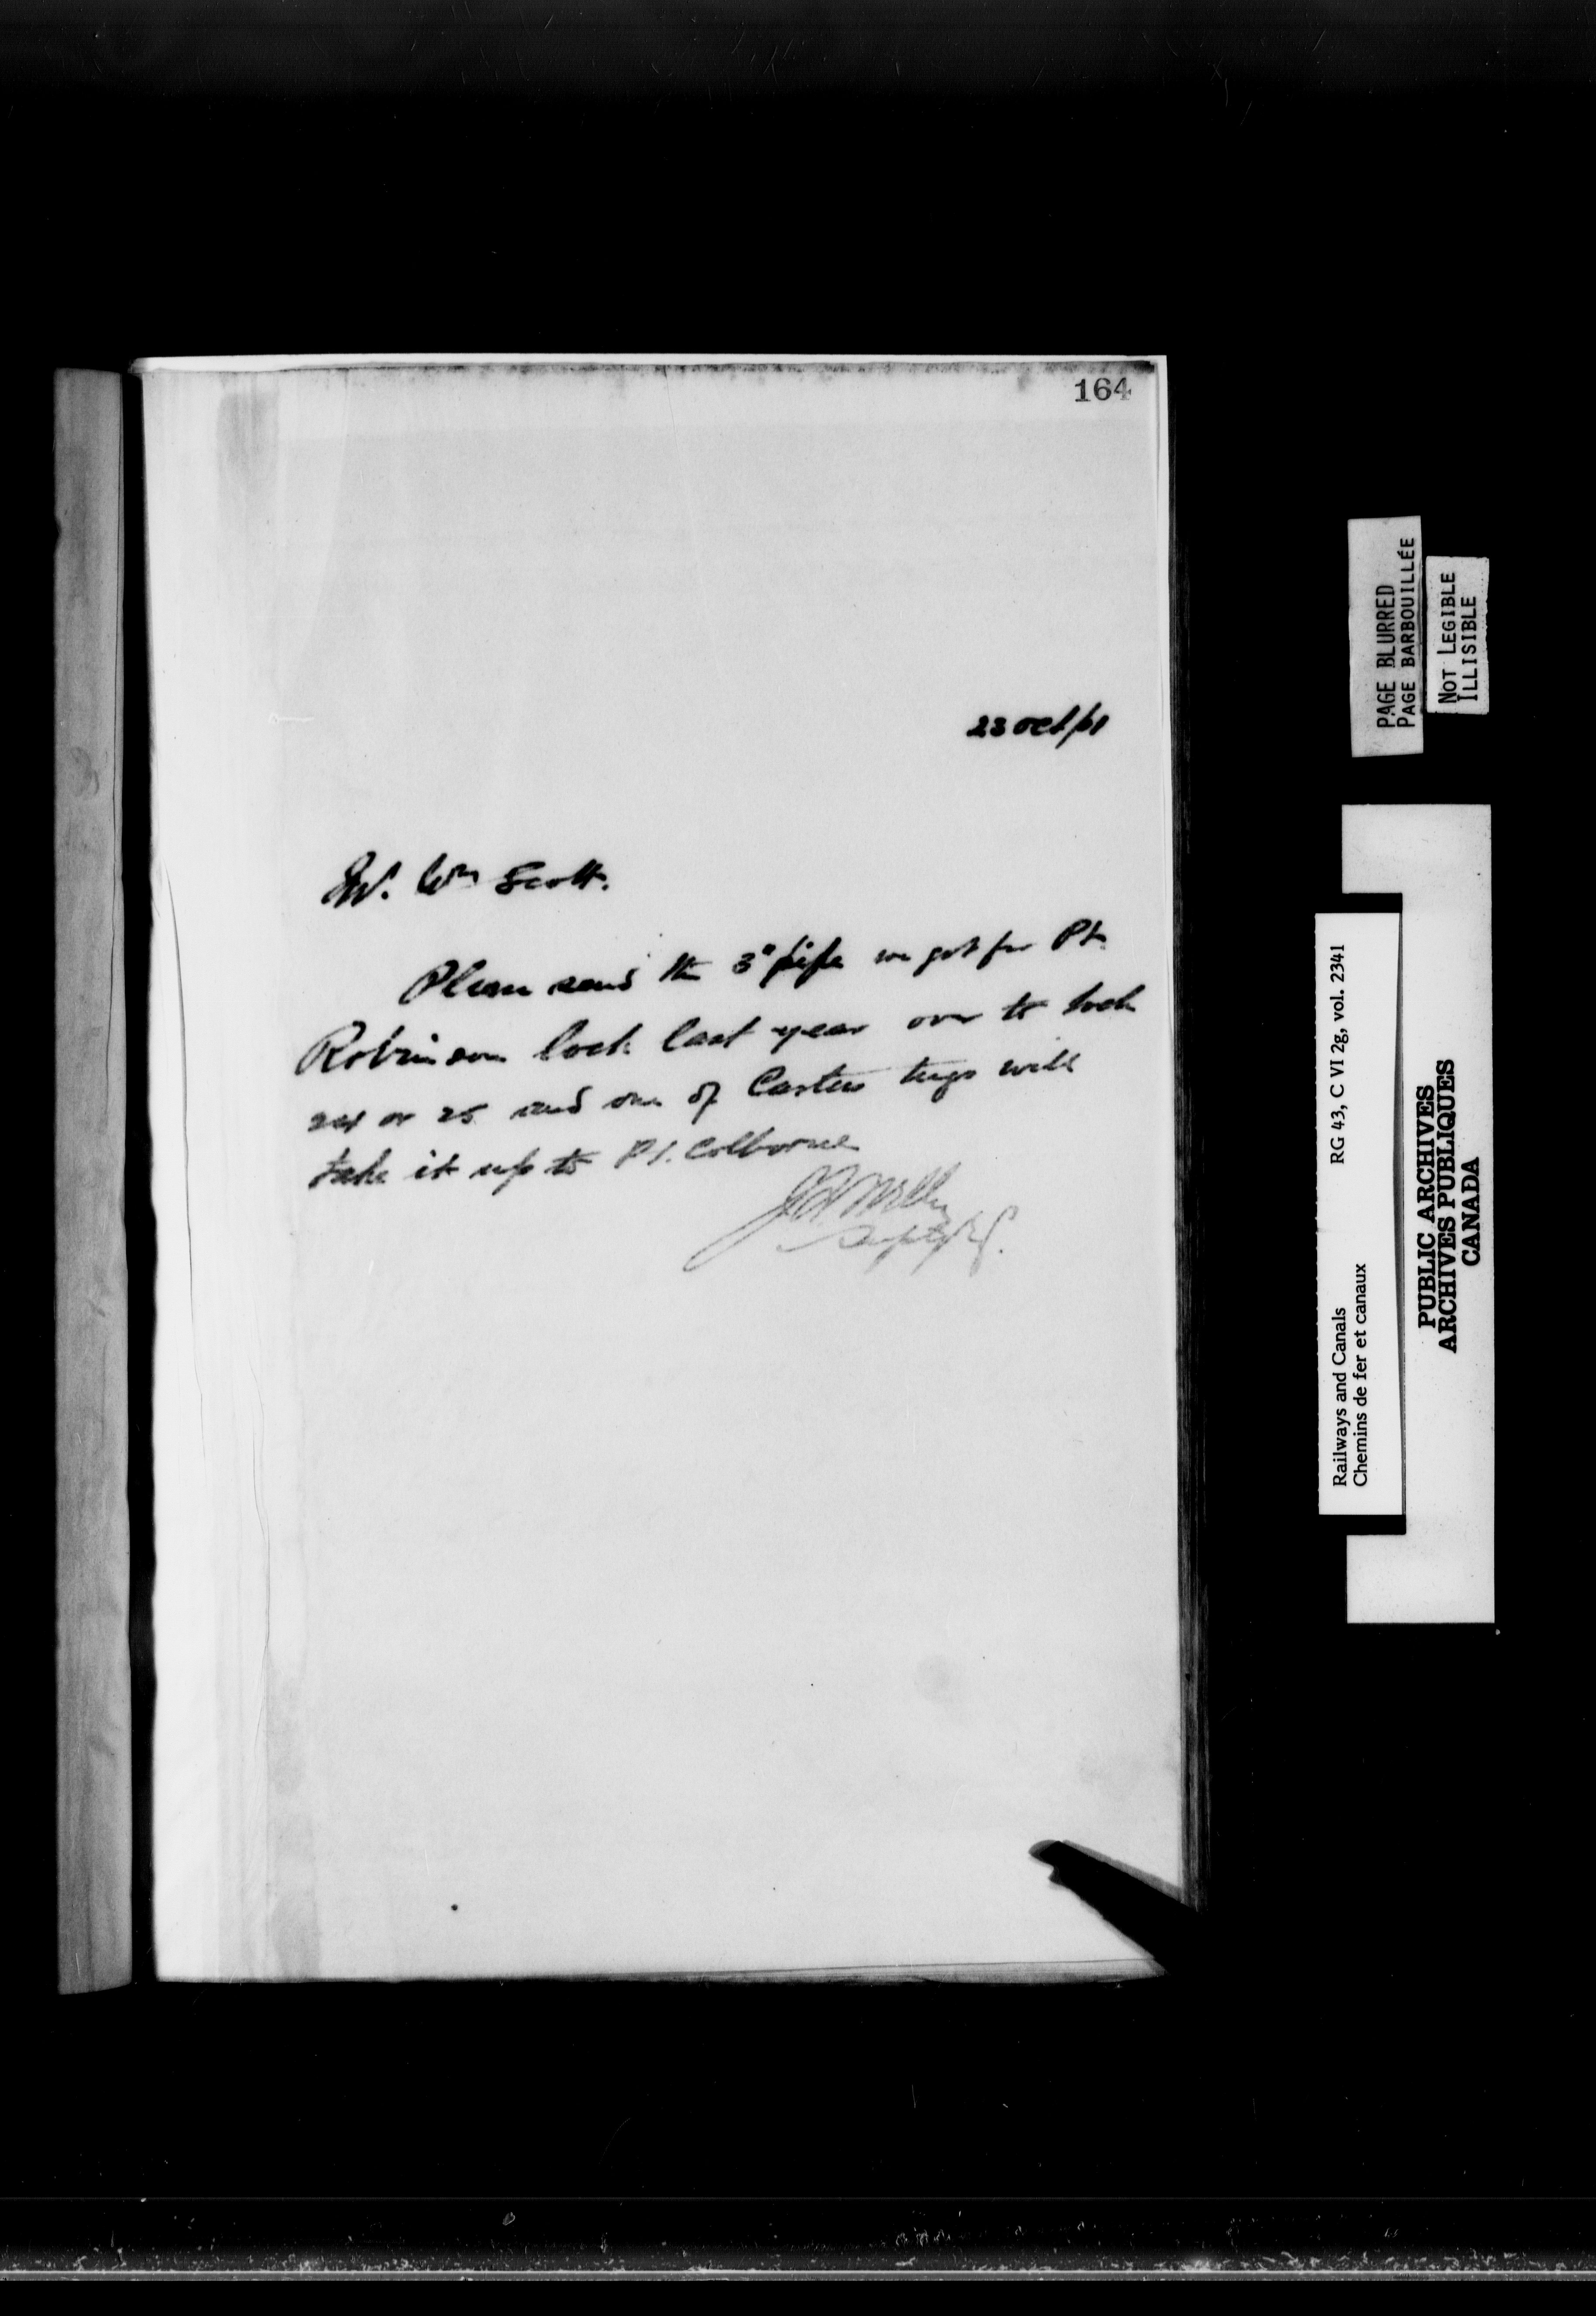 164
23 Oct/01
Mr. Wm Scott.
Please send the 3" pipe we got for Pt.
Robinson lock last year over to lock
24 or 25 and one of Carters tugs will
take it up to Pt. Colborne
Supt
PAGE BLURRED
PAGE BARBOUILLÉE
NOT LEGIBLE
ILLISIBLE
Railways and Canals RG 43, C VI 2g, vol. 2341
Chemins de fer et canaux
PUBLIC ARCHIVES
ARCHIVES PUBLIQUES
CANADA